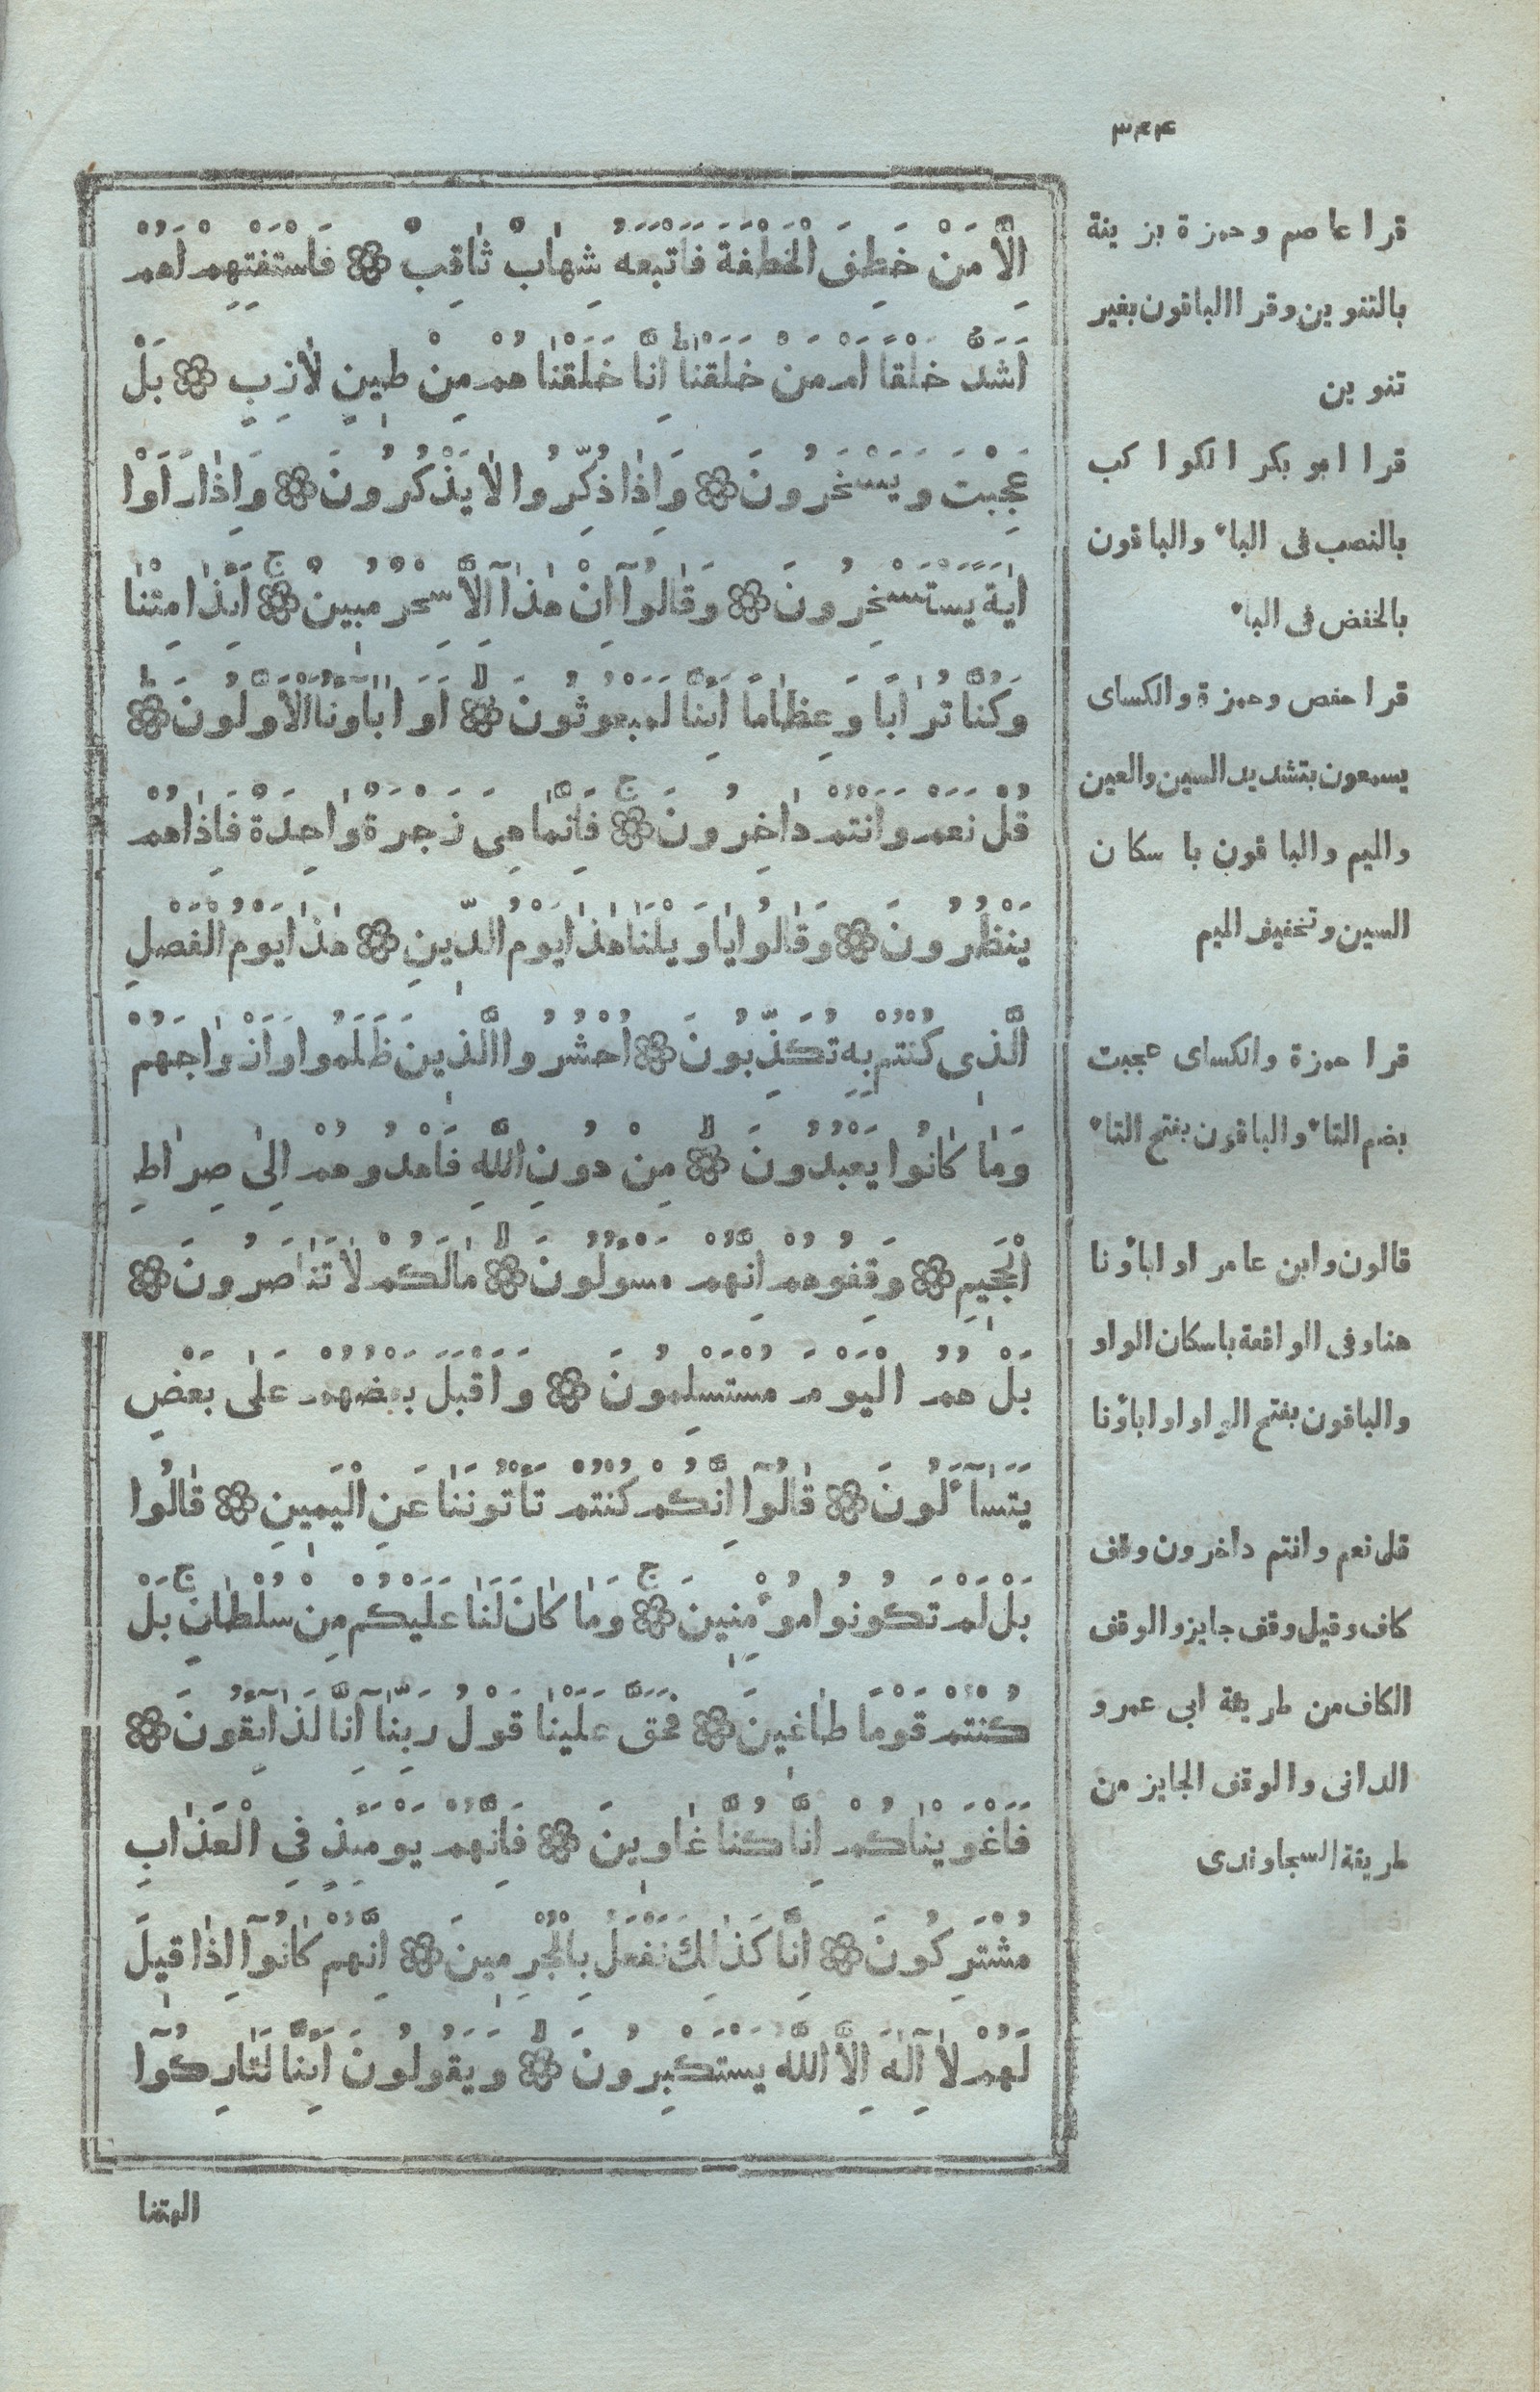 ٣٤٤
اِلَّا مَنْ خَطِفَ الْخَطْفَةَ فَاَتْبَعَهُ شِهَابٌ ثَاقِبٌ ۝ فَاسْتَفْتِهِمْ اَهُمْ
اَشَدُّ خَلْقًا اَمْ مَنْ خَلَقْنَاۜ اِنَّا خَلَقْنَاهُمْ مِنْ طِينٍ لَازِبٍ ۝ بَلْ
عَجِبْتَ وَيَسْخَرُونَ ۝ وَاِذَا ذُكِّرُوا لَا يَذْكُرُونَ ۝ وَاِذَا رَاَوْا
اٰيَةً يَسْتَسْخِرُونَ ۝ وَقَالُوٓا اِنْ هٰذَآ اِلَّا سِحْرٌ مُبِينٌ ۝ۚ اَئِذَا مِتْنَا
وَكُنَّا تُرَابًا وَعِظَامًا اَئِنَّا لَمَبْعُوثُونَ ۝ۙ اَوَ اٰبَآؤُنَا الْاَوَّلُونَ ۝ط
قُلْ نَعَمْ وَاَنْتُمْ دَاخِرُونَ ۝ۚ فَاِنَّمَا هِيَ زَجْرَةٌ وَاحِدَةٌ فَاِذَا هُمْ
يَنْظُرُونَ ۝ وَقَالُوا يَا وَيْلَنَا هٰذَا يَوْمُ الدِّينِ ۝ هٰذَا يَوْمُ الْفَصْلِ
الَّذِي كُنْتُمْ بِهِ تُكَذِّبُونَ ۝ اُحْشُرُوا الَّذِينَ ظَلَمُوا وَاَزْوَاجَهُمْ
وَمَا كَانُوا يَعْبُدُونَ ۝ۙ مِنْ دُونِ اللَّهِ فَاهْدُوهُمْ اِلٰى صِرَاطِ
الْجَحِيمِ ۝ وَقِفُوهُمْ اِنَّهُمْ مَسْؤُلُونَ ۝ۙ مَا لَكُمْ لَا تَنَاصَرُونَ ۝
بَلْ هُمُ الْيَوْمَ مُسْتَسْلِمُونَ ۝ وَاَقْبَلَ بَعْضُهُمْ عَلٰى بَعْضٍ
يَتَسَآءَلُونَ ۝ قَالُوٓا اِنَّكُمْ كُنْتُمْ تَأْتُونَنَا عَنِ الْيَمِينِ ۝ قَالُوا
بَلْ لَمْ تَكُونُوا مُؤْمِنِينَ ۝ۚ وَمَا كَانَ لَنَا عَلَيْكُمْ مِنْ سُلْطَانٍۚ بَلْ
كُنْتُمْ قَوْمًا طَاغِينَ ۝ فَحَقَّ عَلَيْنَا قَوْلُ رَبِّنَآ اِنَّا لَذَآئِقُونَ ۝
فَاَغْوَيْنَاكُمْ اِنَّا كُنَّا غَاوِينَ ۝ فَاِنَّهُمْ يَوْمَئِذٍ فِي الْعَذَابِ
مُشْتَرِكُونَ ۝ اِنَّا كَذٰلِكَ نَفْعَلُ بِالْمُجْرِمِينَ ۝ اِنَّهُمْ كَانُوٓا اِذَا قِيلَ
لَهُمْ لَآ اِلٰهَ اِلَّا اللَّهُ يَسْتَكْبِرُونَ ۝ۙ وَيَقُولُونَ اَئِنَّا لَتَارِكُوٓا
الهتنا
قرا عاصم وحمزة بزينة
بالتنوين وقرا الباقون بغير
تنوين
قرا ابو بكر الكواكب
بالنصب فى الباء والباقون
بالخفض فى الباء
قرا حفص وحمزة والكساى
يسمعون بتشديد السين والعين
والميم والباقون باسكان
السين وتخفيف الميم
قرا حمزة والكساى عجبت
بضم التاء والباقون بفتح التاء
قالون وابن عامر او اباؤنا
هنا وفى الواقعة باسكان الواو
والباقون بفتح الواو او اباؤنا
قل نعم وانتم داخرون وقف
كاف وقيل وقف جايز والوقف
الكاف من طريقة ابى عمرو
الدانى والوقف الجايز من
طريقة السجاوندى